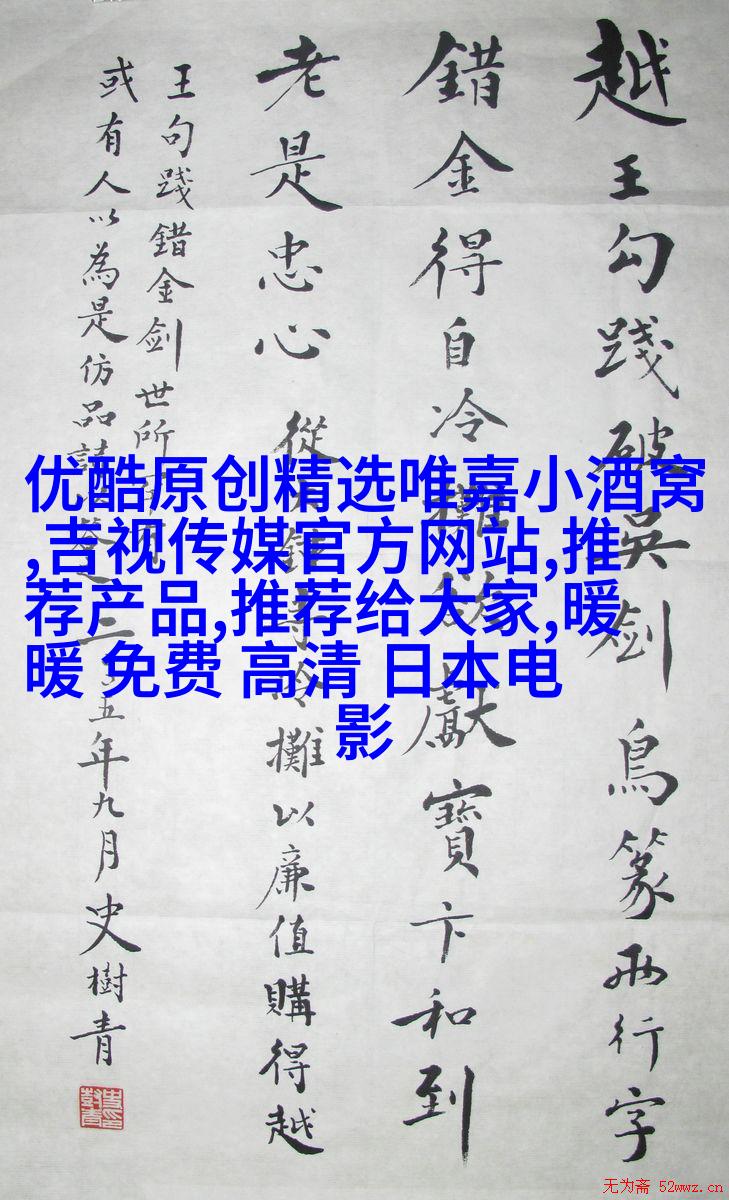 越王勾踐破吳劍鳥篆兩行字
錯金得自冷攤獻寶卞和到
老是忠心
從冷攤以廉值購得越
王句踐錯金劍世所
或有人以為是仿品二五年九月史樹青
优酷原创精选唯嘉小酒窝
,吉视传媒官方网站,推
荐产品,推荐给大家,暖
暖 免费 高清 日本电
影
无为斋 52wwz.cn